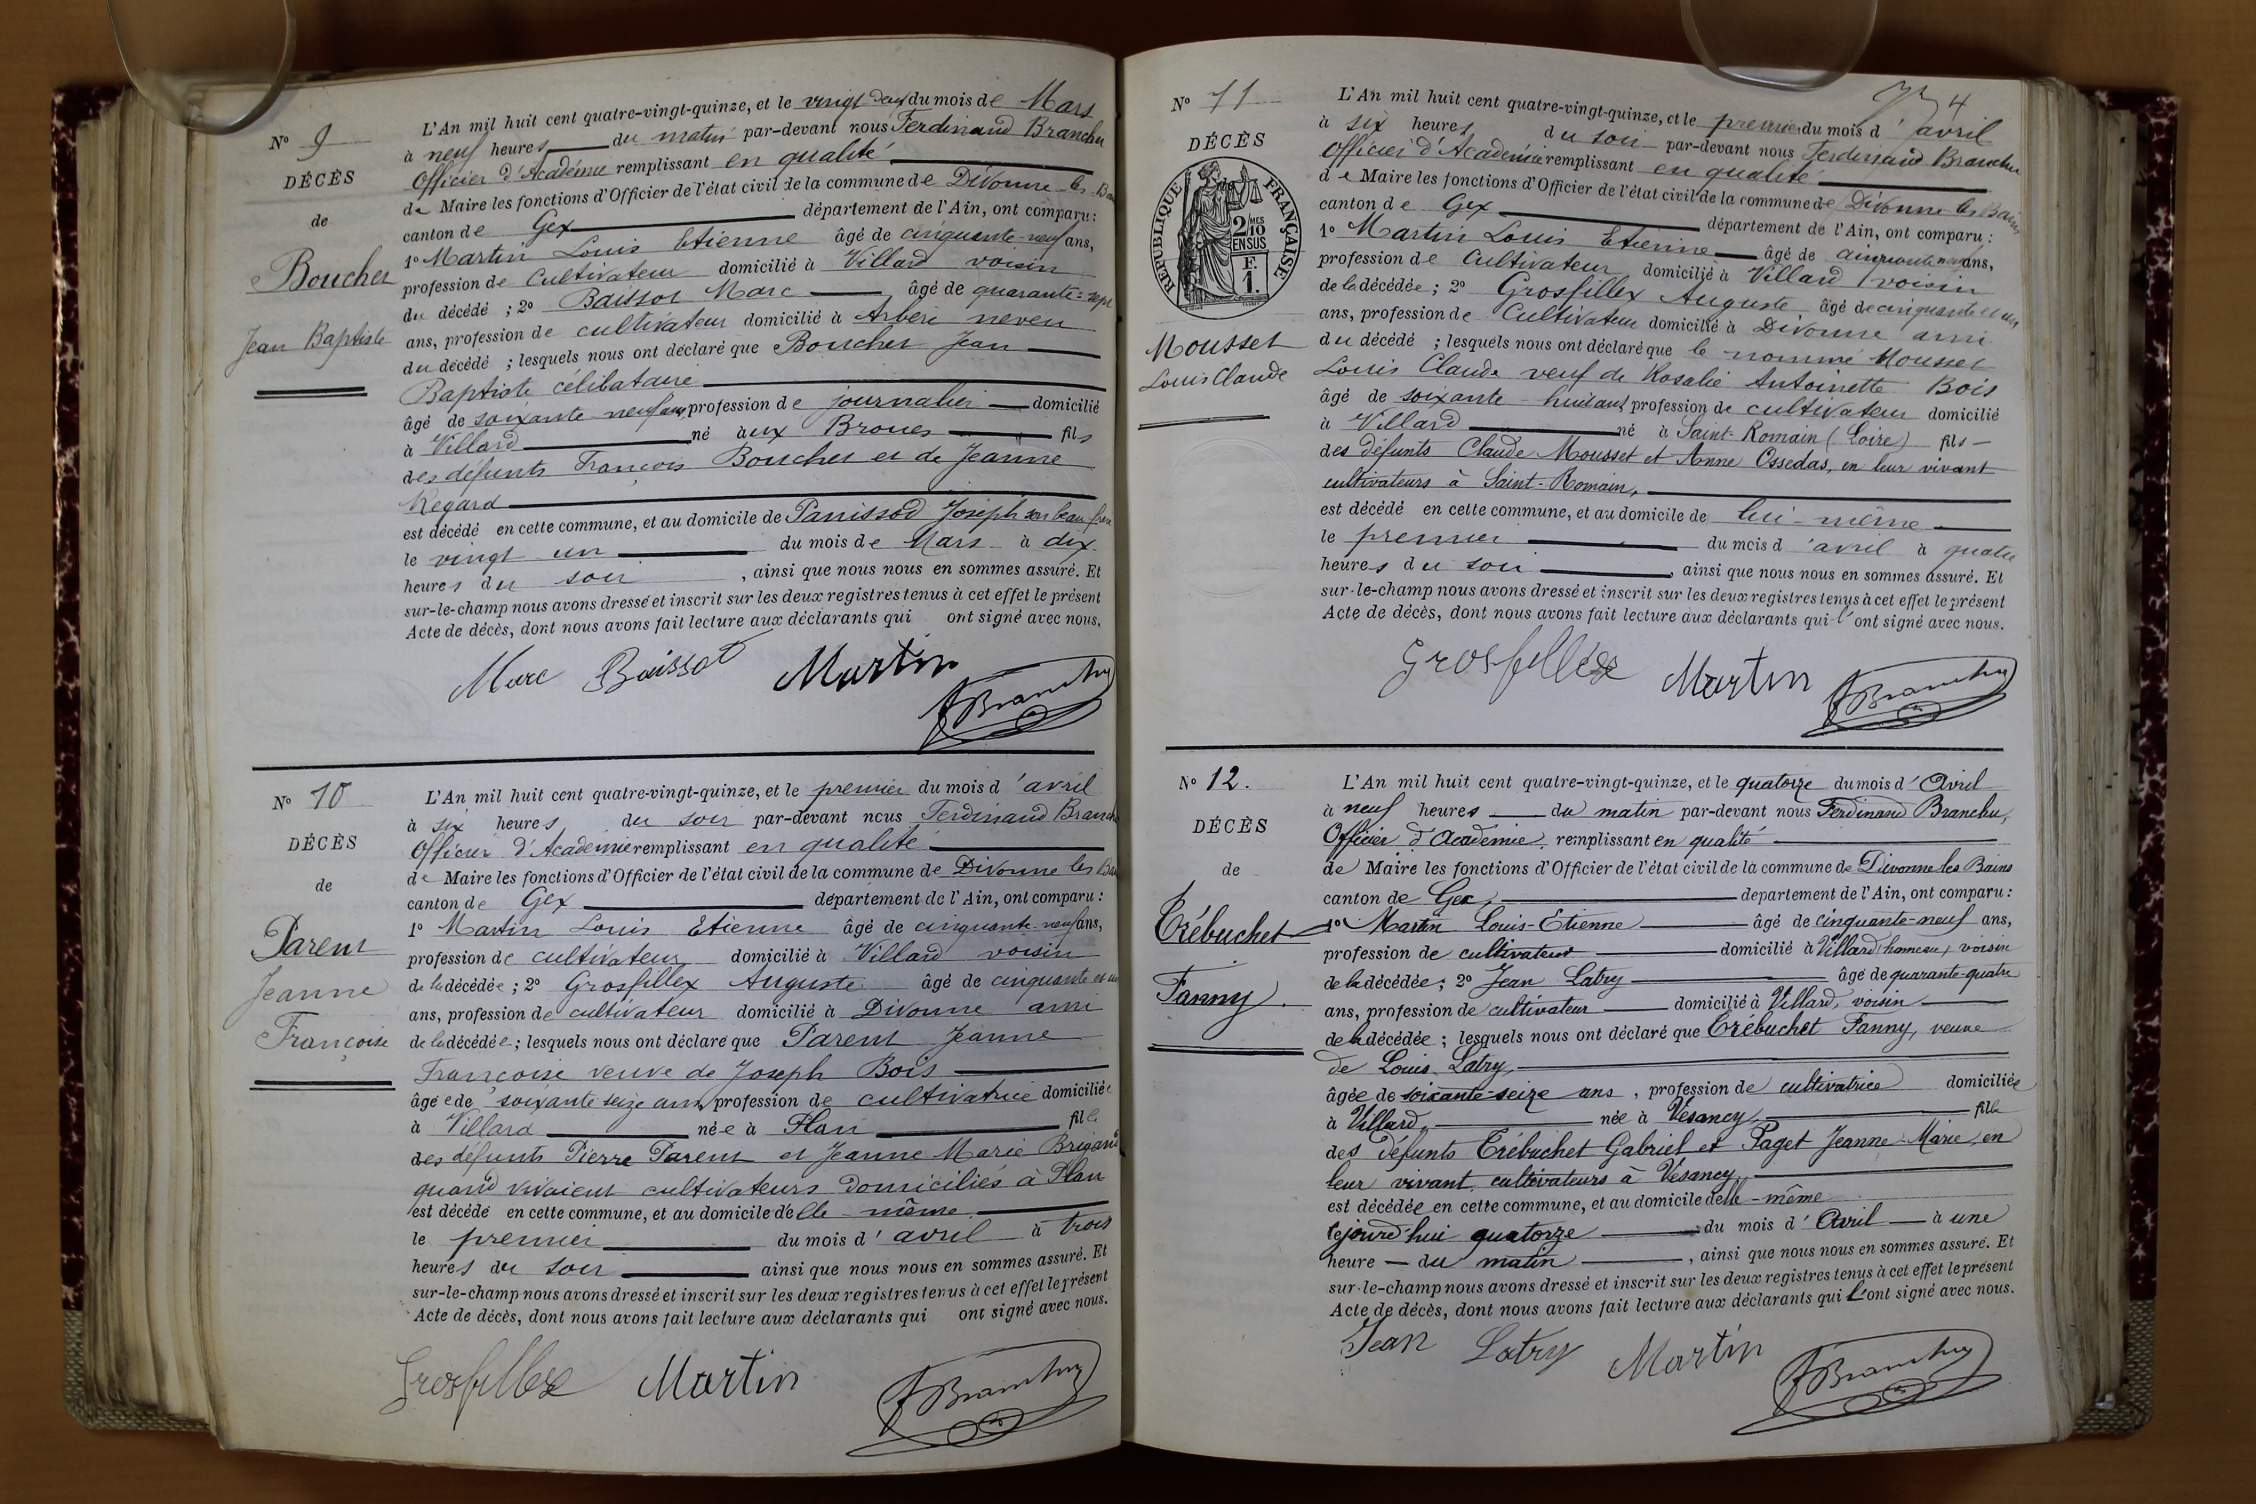 N° 9
DÉCÈS
de
Boucher
Jean Baptiste
L'An mil huit cent quatre-vingt-quinze, et le vingt deux du mois de Mars
à neuf heures du matin par-devant nous Ferdinand Branchu
Officier d'Académie remplissant en qualité
de Maire les fonctions d'Officier de l'état civil de la commune de Divonne les
canton de Gex département de l'Ain, ont comparu :
1° Martin Louis Etienne âgé de cinquante-neuf ans,
profession de cultivateur domicilié à Villard voisin
du décédé ; 2° Baissot Marc âgé de quarante-sept
ans, profession de cultivateur domicilié à Arbère neveu
du décédé ; lesquels nous ont déclaré que Boucher Jean
Baptiste célibataire
âgé de soixante neuf ans, profession de journalier domicilié
à Villard né aux Broues fils
des défunts François Boucher et de Jeanne
Regard
est décédé en cette commune, et au domicile de Panissod Joseph son beau frère
le vingt un du mois de Mars à dix
heures du soir, ainsi que nous nous en sommes assuré. Et
sur-le-champ nous avons dressé et inscrit sur les deux registres tenus à cet effet le présent
Acte de décès, dont nous avons fait lecture aux déclarants qui ont signé avec nous.
Marc Baissot Martin
F Branchu
N° 10
DÉCÈS
de
Parent
Jeanne
Françoise
L'An mil huit cent quatre-vingt-quinze, et le premier du mois d'avril
à six heures du soir par-devant nous Ferdinand Branchu
Officier d'Académie remplissant en qualité
de Maire les fonctions d'Officier de l'état civil de la commune de Divonne les
canton de Gex département de l'Ain, ont comparu :
1° Martin Louis Etienne âgé de cinquante-neuf ans,
profession de cultivateur domicilié à Villard voisin
de la décédée ; 2° Grosfillex Auguste âgé de cinquante et un
ans, profession de cultivateur domicilié à Divonne ami
de la décédée ; lesquels nous ont déclaré que Parent Jeanne
Françoise veuve de Joseph Bois
âgée de soixante seize ans, profession de cultivatrice domiciliée
à Villard née à Plan fille
des défunts Pierre Parent et Jeanne Marie Brigand
quand vivaient cultivateurs domiciliés à Plan
est décédé en cette commune, et au domicile d'elle-même
le premier du mois d'avril à trois
heures du soir ainsi que nous nous en sommes assuré. Et
sur-le-champ nous avons dressé et inscrit sur les deux registres tenus à cet effet le présent
Acte de décès, dont nous avons fait lecture aux déclarants qui ont signé avec nous.
Grosfillex Martin F Branchu
4
N° 11
DÉCÈS
REPUBLIQUE FRANÇAISE
2/10MES
EN SUS
F.
1.
Mousset
Louis Claude
L'An mil huit cent quatre-vingt-quinze, et le premier du mois d'avril
à six heures du soir par-devant nous Ferdinand Branchu
Officier d'Académie remplissant en qualité
de Maire les fonctions d'Officier de l'état civil de la commune de Divonne les Bains
canton de Gex département de l'Ain, ont comparu :
1° Martin Louis Etienne âgé de cinquante neuf ans,
profession de cultivateur domicilié à Villard voisin
de la décédée ; 2° Grosfillex Auguste âgé de cinquante et un
ans, profession de cultivateur domicilié à Divonne ami
du décédé ; lesquels nous ont déclaré que le nommé Mousset
Louis Claude veuf de Rosalie Antoinette Bois
âgé de soixante-huit ans, profession de cultivateur domicilié
à Villard né à Saint-Romain (Loire) fils
des défunts Claude Mousset et Anne Ossedas, en leur vivant
cultivateurs à Saint-Romain,
est décédé en cette commune, et au domicile de lui-même
le premier du mois d'avril à quatre
heures du soir, ainsi que nous nous en sommes assuré. Et
sur-le-champ nous avons dressé et inscrit sur les deux registres tenus à cet effet le présent
Acte de décès, dont nous avons fait lecture aux déclarants qui l'ont signé avec nous.
Grosfillex Martin F Branchu
N° 12.
DÉCÈS
de
Trébuchet
Fanny.
L'An mil huit cent quatre-vingt-quinze, et le quatorze du mois d'Avril
à neuf heures du matin par-devant nous Ferdinand Branchu,
Officier d'Académie, remplissant en qualité
de Maire les fonctions d'Officier de l'état civil de la commune de Divonne les Bains
canton de Gex, département de l'Ain, ont comparu :
1° Martin Louis-Etienne âgé de cinquante-neuf ans,
profession de cultivateur domicilié à Villard (hameau) voisin
de la décédée ; 2° Jean Latry âgé de quarante-quatre
ans, profession de cultivateur domicilié à Villard, voisin
de la décédée ; lesquels nous ont déclaré que Trébuchet Fanny, veuve
de Louis Latry,
âgée de soixante-seize ans, profession de cultivatrice domiciliée
à Villard, née à Vesancy, fille
des défunts Trébuchet Gabriel et Paget Jeanne-Marie, en
leur vivant cultivateurs à Vésancy,
est décédée en cette commune, et au domicile d'elle-même
cejourd'hui quatorze du mois d'Avril à une
heure du matin, ainsi que nous nous en sommes assuré. Et
sur-le-champ nous avons dressé et inscrit sur les deux registres tenus à cet effet le présent
Acte de décès, dont nous avons fait lecture aux déclarants qui l'ont signé avec nous.
Jean Latry Martin F Branchu